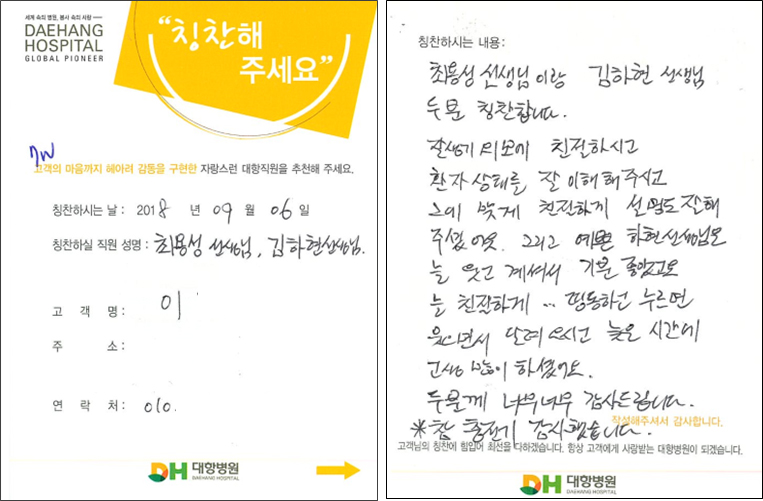 세계 속의 병원, 봉사 속의 사랑
DAEHANG
HOSPITAL
GLOBAL PIONEER
"칭찬해
주세요"
7W
고객의 마음까지 헤아려 감동을 구현한 자랑스런 대항직원을 추천해 주세요.
칭찬하시는 날 : 2018 년 09 월 06 일
칭찬하실 직원 성명 : 최용성 선생님, 김하현선생님.
고 객 명 : 이
주 소 :
연 락 처 : 010.
DH 대항병원
DAEHANG HOSPITAL
칭찬하시는 내용 :
최용성 선생님이랑 김하현 선생님
두분 칭찬합니다.
잘생긴 외모에 친절하시고
환자상태를 잘 이해해주시고
그에 맞게 친절하게 설명도 잘해
주셨어요. 그리고 예쁜 하현선생님은
늘 웃고 계셔서 기분 좋았고요
늘 친절하게 … 띵동하고 누르면
웃으면서 달려 오시고 늦은 시간에
고생 많이 하셨어요.
두분께 너무너무 감사드립니다.
작성해주셔서 감사합니다.
*참 감사했습니다.
고객님의 칭찬에 힘입어 최선을 다하겠습니다. 항상 고객에게 사랑받는 대항병원이 되겠습니다.
DH 대항병원
DAEHANG HOSPITAL